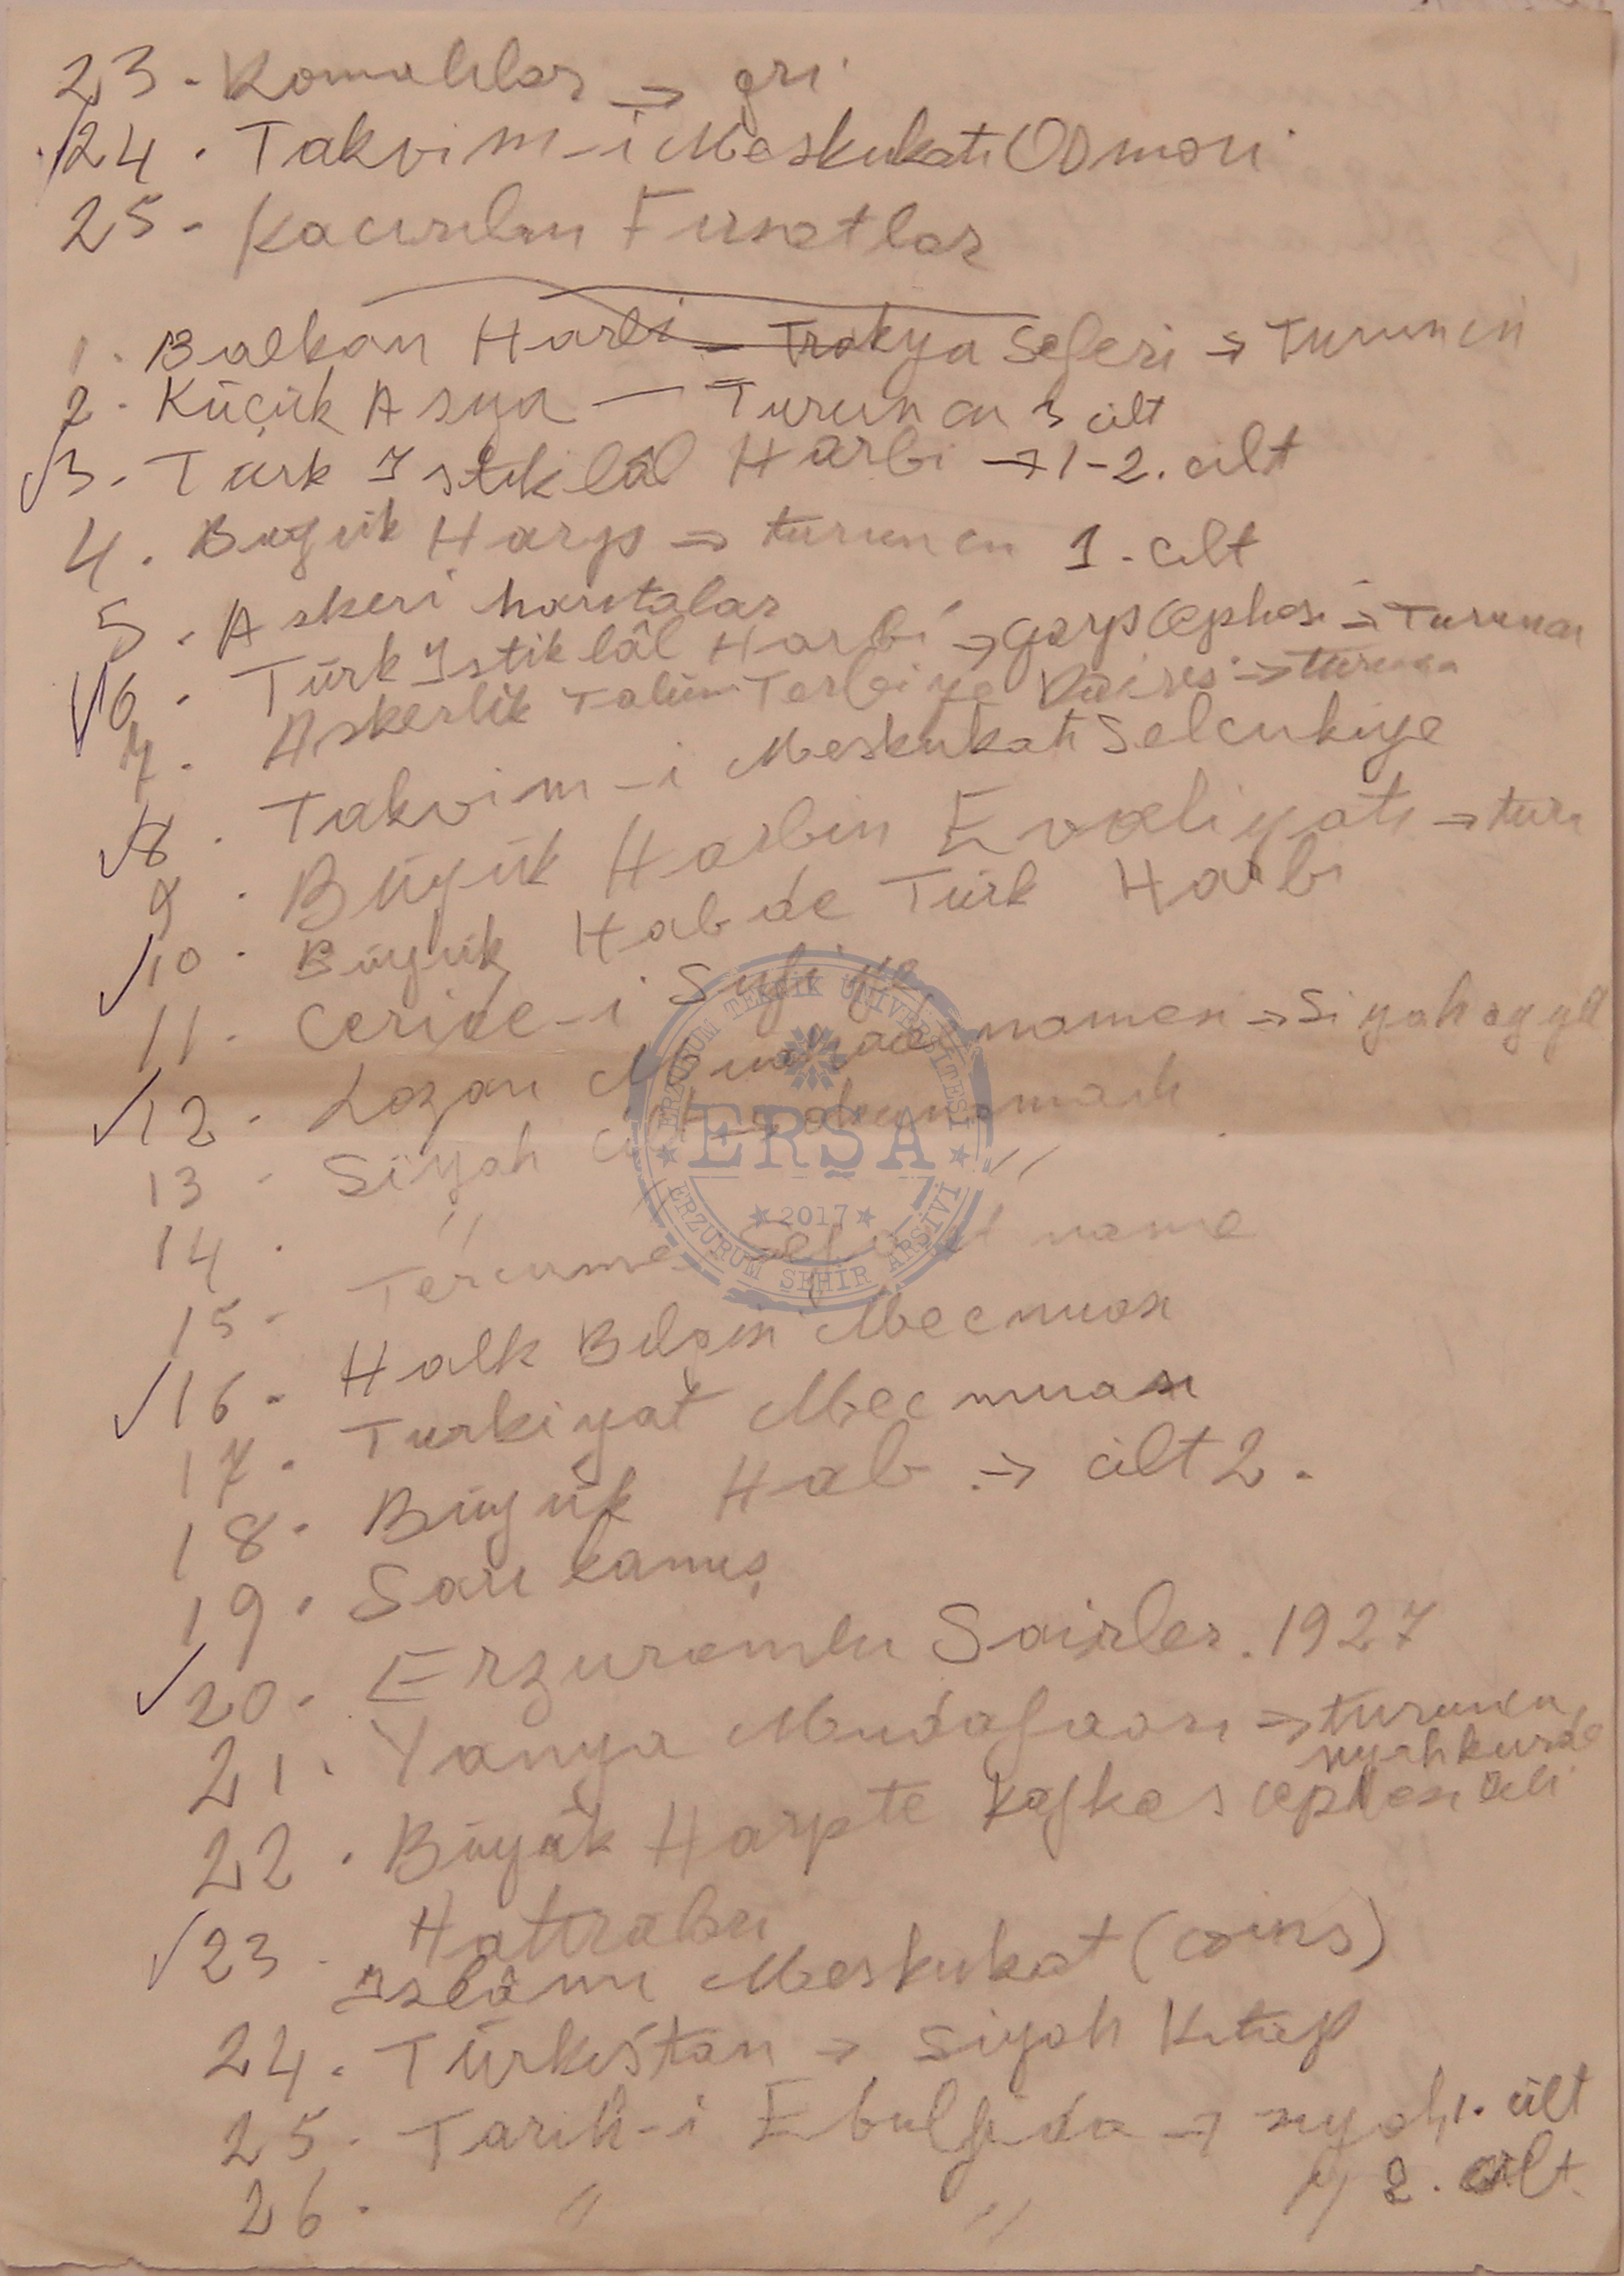 23 - Romalılar → gri
24 . Takvim-i Meskukatı Osmani
25 - Kacırılan Fırsatlar
1 . Balkan Harbi - Trakya Seferi → Turuncu
2 - Küçük Asya — Turuncu 3 cilt
3 - Türk İstiklâl Harbi → 1-2. cilt
4 . Büyük Harp ⇒ turuncu 1. cilt
5 . Askeri haritalar
6 . Türk İstiklâl Harbi → Garp Cephesi → Turuncu
7 . Askerlik Talim Terbiye Dairesi → turuncu
8 . Takvim-i Meskukatı Selcukiye
9 . Büyük Harbin Evveliyatı → turu
10 . Büyük Habde Türk Harbi
11 - Ceride-i Sufiye
12 . Lozan Muahadenamesi → Siyah
13 - Siyah cilt →
14 . " "
15 - Tercume name
16 - Halk Bilgisi Mecmuası
17 . Turkiyat Mecmuası
18 . Büyük Hab → cilt 2 .
19 . Sarıkamış
20 . Erzuromlu Sairler . 1927
21 . Yanya Mudafaası → turuncu,
siyah kurde
22 . Büyük Harpte Kafkas cephesi
Hatıraları
23 - İslâmı Meskukat (coins)
24 . Türkistan → Siyah Kitap
25 . Tarih-i Ebulfida → siyah 1. cilt
26 . " " " 2. cilt
ERZURUM TEKNİK ÜNİVERSİTESİ
ERŞA
2017
ERZURUM ŞEHİR ARŞİVİ